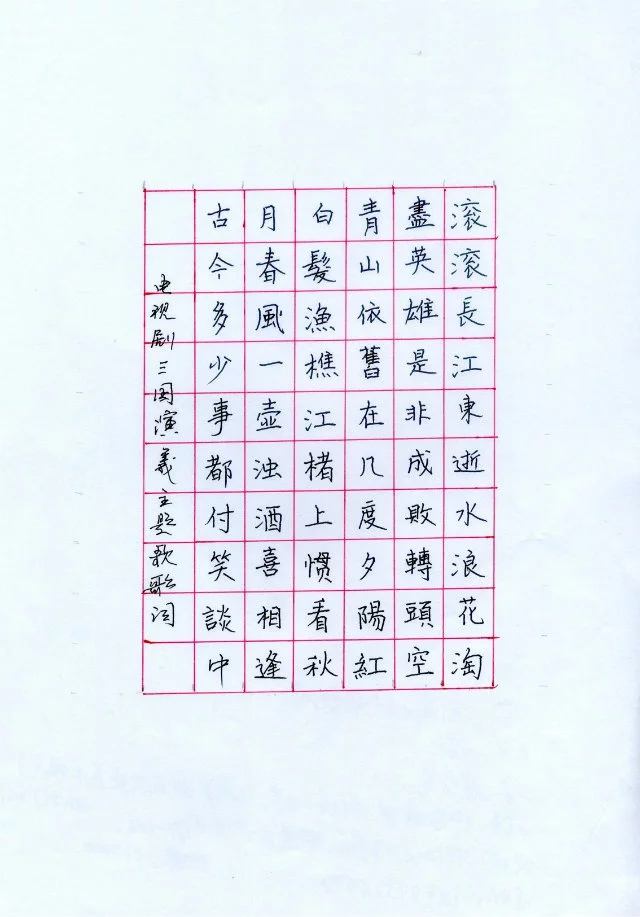 滚滚長江東逝水浪花淘
盡英雄是非成敗轉頭空
青山依舊在几度夕陽紅
白髮漁樵江楮上慣看秋
月春風一壺浊酒喜相逢
古今多少事都付笑談中
电视剧三国演義主题歌歌词